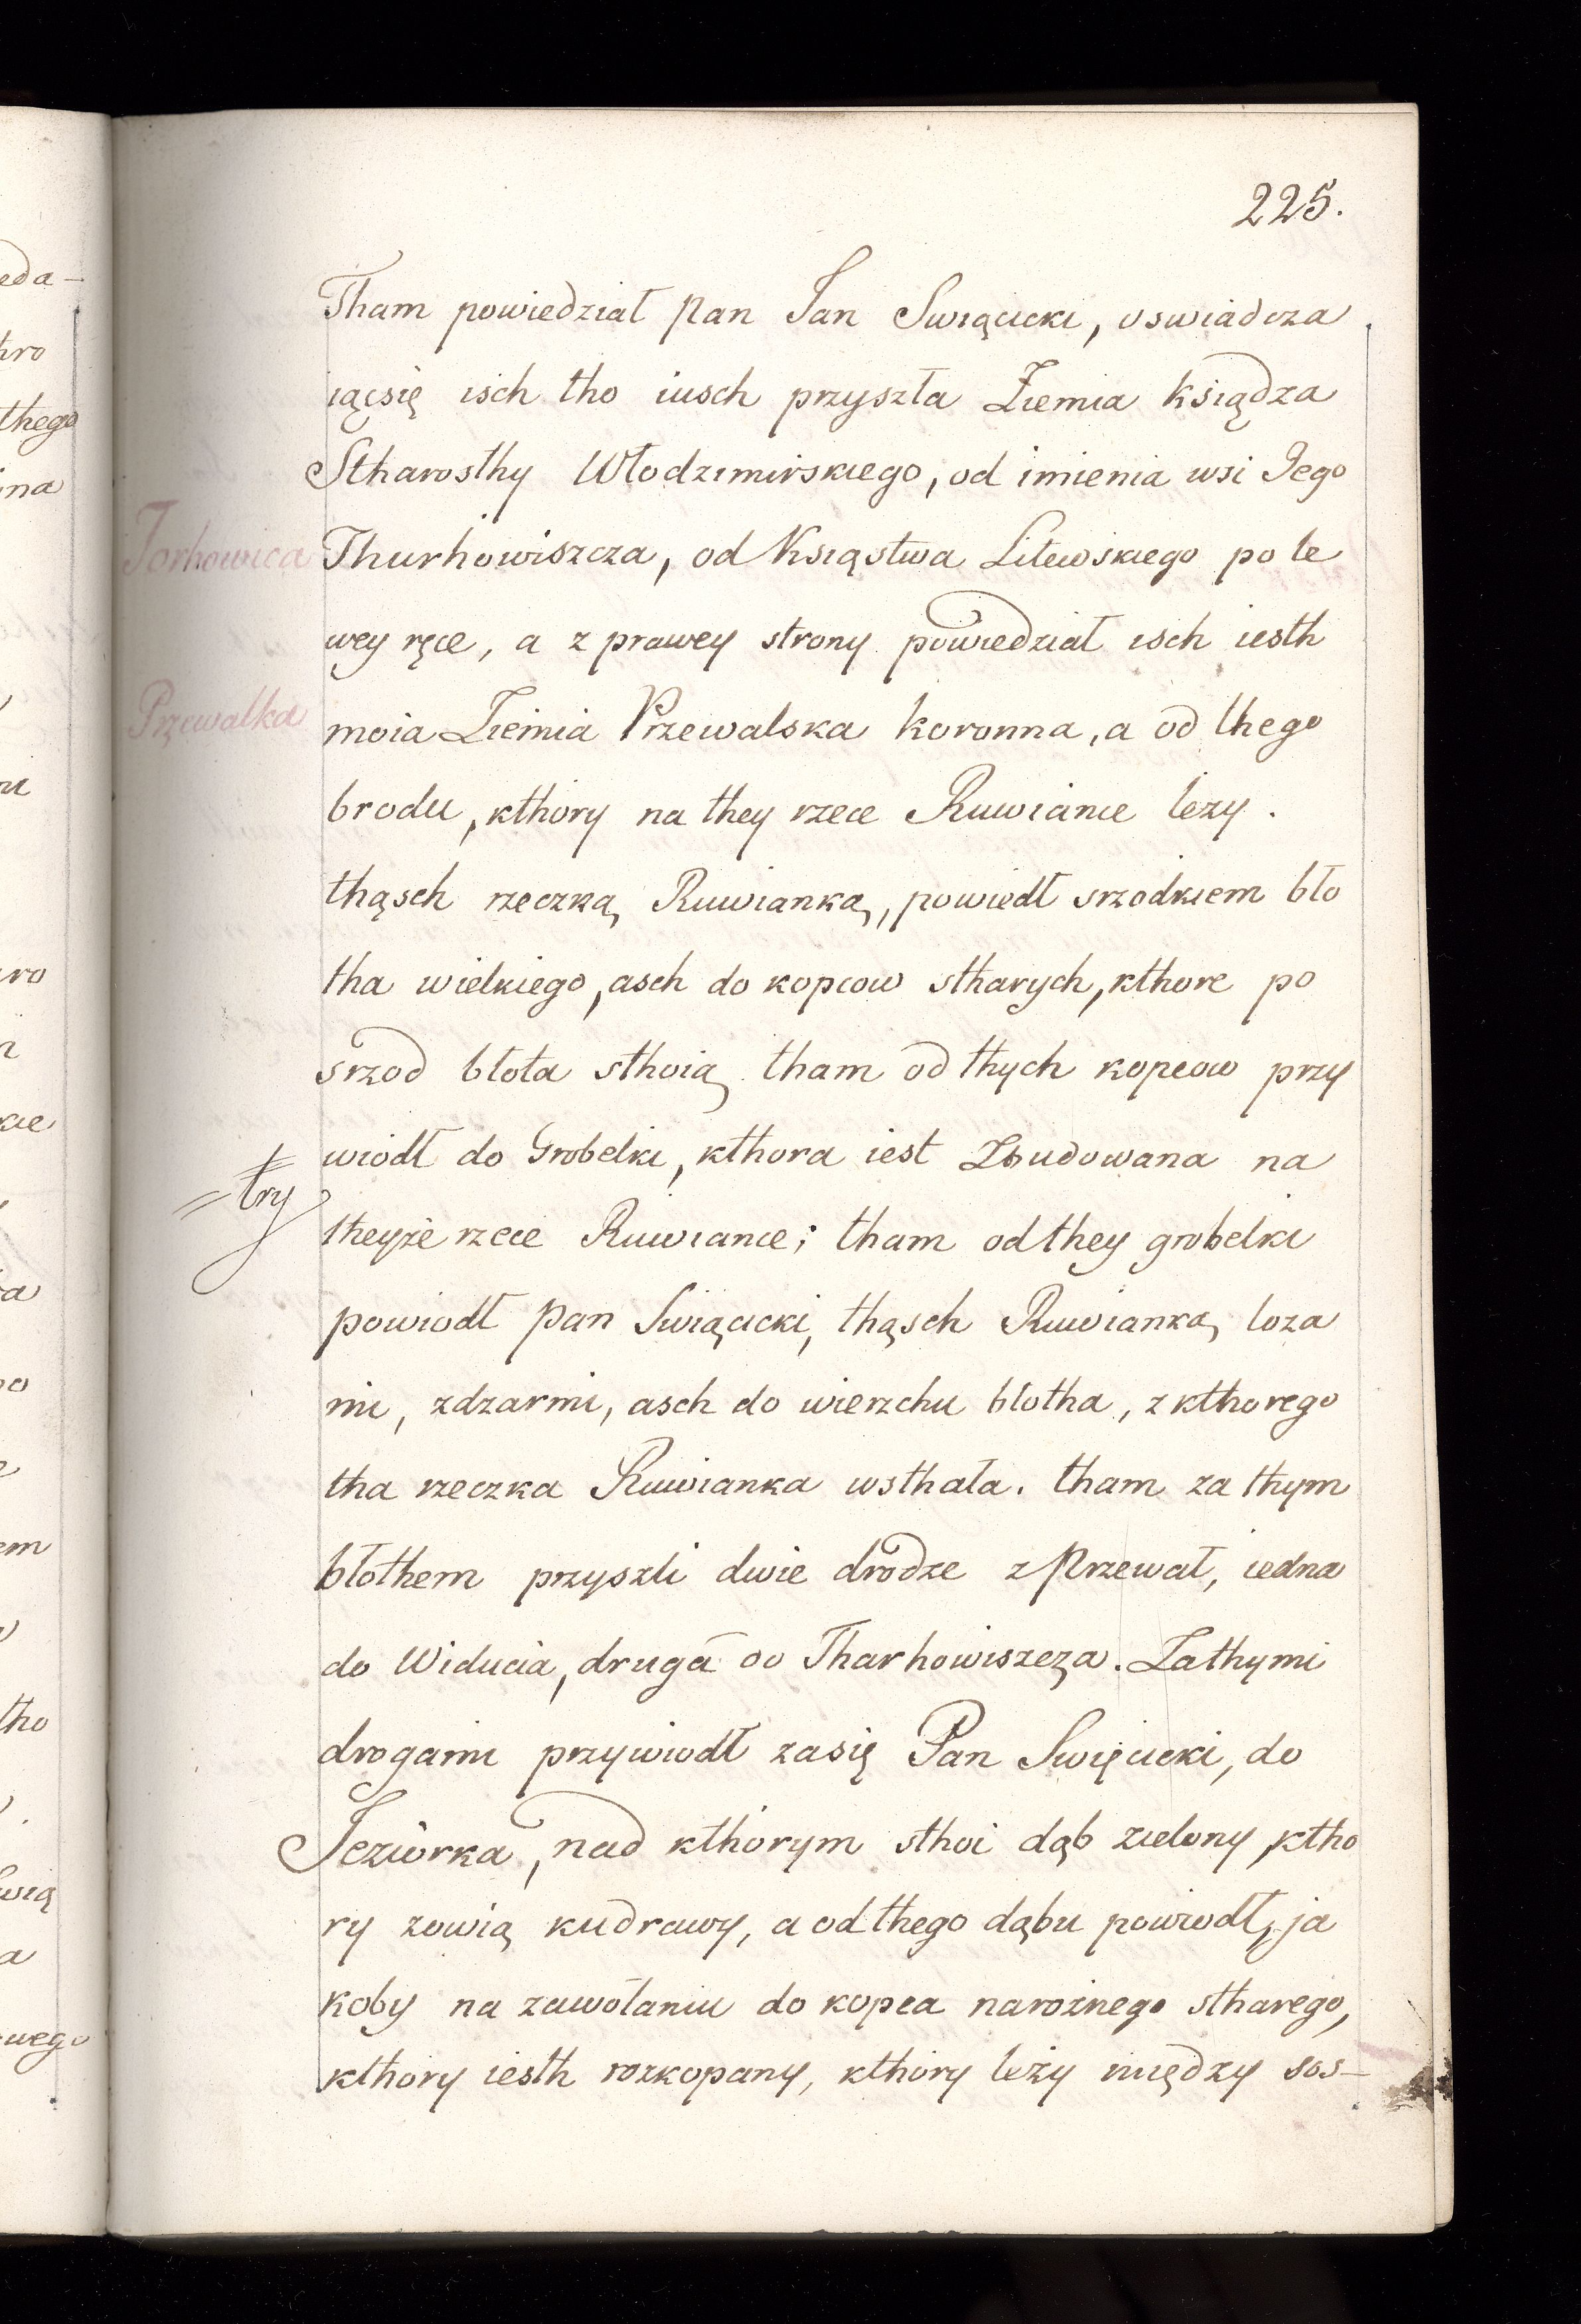 225.
Tham powiedział pan Jan Swiącicki, oswiadcza
iącsię isch tho iusch przyszła Ziemia księdza
Stharosthy Włodzimirskiego, od imienia wsi Jego
Torhowica
Thurhowiszcza, od Xsiąstwa Litewskiego po le
wey ręce, a z prawey strony powiedział isch iesth
Przewałka
moia Ziemia Przewalska koronna, a od thego
brodu, kthory na they rzece Ruwiance lezy.
thąsch rzeczką Ruwianką, powiedł srzodkiem bło
tha wielkiego, asch do kopcow stharych, kthore po
srzod błota sthoią tham od thych kopcow przy
wiodł do Grobelki, kthora iest Zbudowana na
try
theyże rzece Ruwiance; tham od they grobelki
powiodł pan Swiącicki, thąsch Ruwianką loza
mi, zdzarmi, asch do wierzchu błotha, z kthorego
tha rzeczka Ruwianka wsthała. tham za thym
błothem przyszli dwie drodze z Przewał, iedna
do Widucia, druga do Tharhowiszcza. Zathymi
drogami przywiodł zasię Pan Swięcicki, do
Jeziorka, nad kthorym sthoi dąb zielony, ktho
ry zowią kudrawy, a od thego dąbu powiodł, ja
koby na zawołaniu do kopca narożnego stharego,
kthory iesth rozkopany, kthory leży między sos-